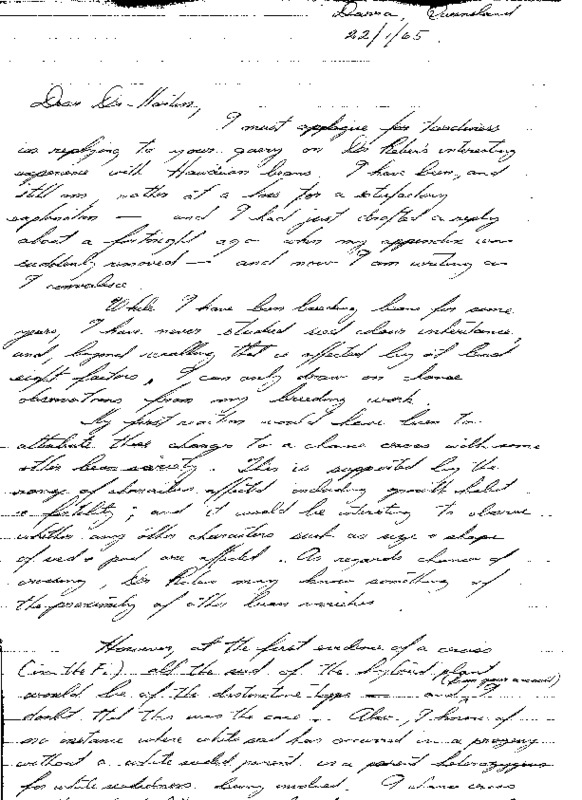 Darra, Queensland
22/1/65.
Dear Dr. Martin,
I must apologise for tardiness
in replying to your query on Dr Reber's interesting
experience with Hawaiian beans. I have been, and
still am, rather at a loss for a satisfactory
explanation — and I had just drafted a reply
about a fortnight ago when my appendix was
suddenly removed — and now I am writing as
I convalesce.
While I have been breeding beans for some
years, I have never studied seed colour inheritance,
and, beyond recalling that is affected by at least
eight factors, I can only draw on chance
observations from my breeding work.
My first reaction would have been to
attribute these changes to a chance cross with some
other bean variety. This is supported by the
range of characters affected including growth habit
& fertility; and it would be interesting to observe
whether any other characters such as size & shape
of seed & pod are affected. As regards chance of
crossing, Dr Reber may know something of
the proximity of other bean varieties.
However, at the first evidence of a cross
(in the F1), all the seed of the hybrid plant
would be of the distinctive type — and (from your account) I
doubt that this was the case. Also, I know of
no instance where white seed has occurred in a progeny
without a white seeded parent or a parent heterozygous
for white seededness being involved. I chance cross